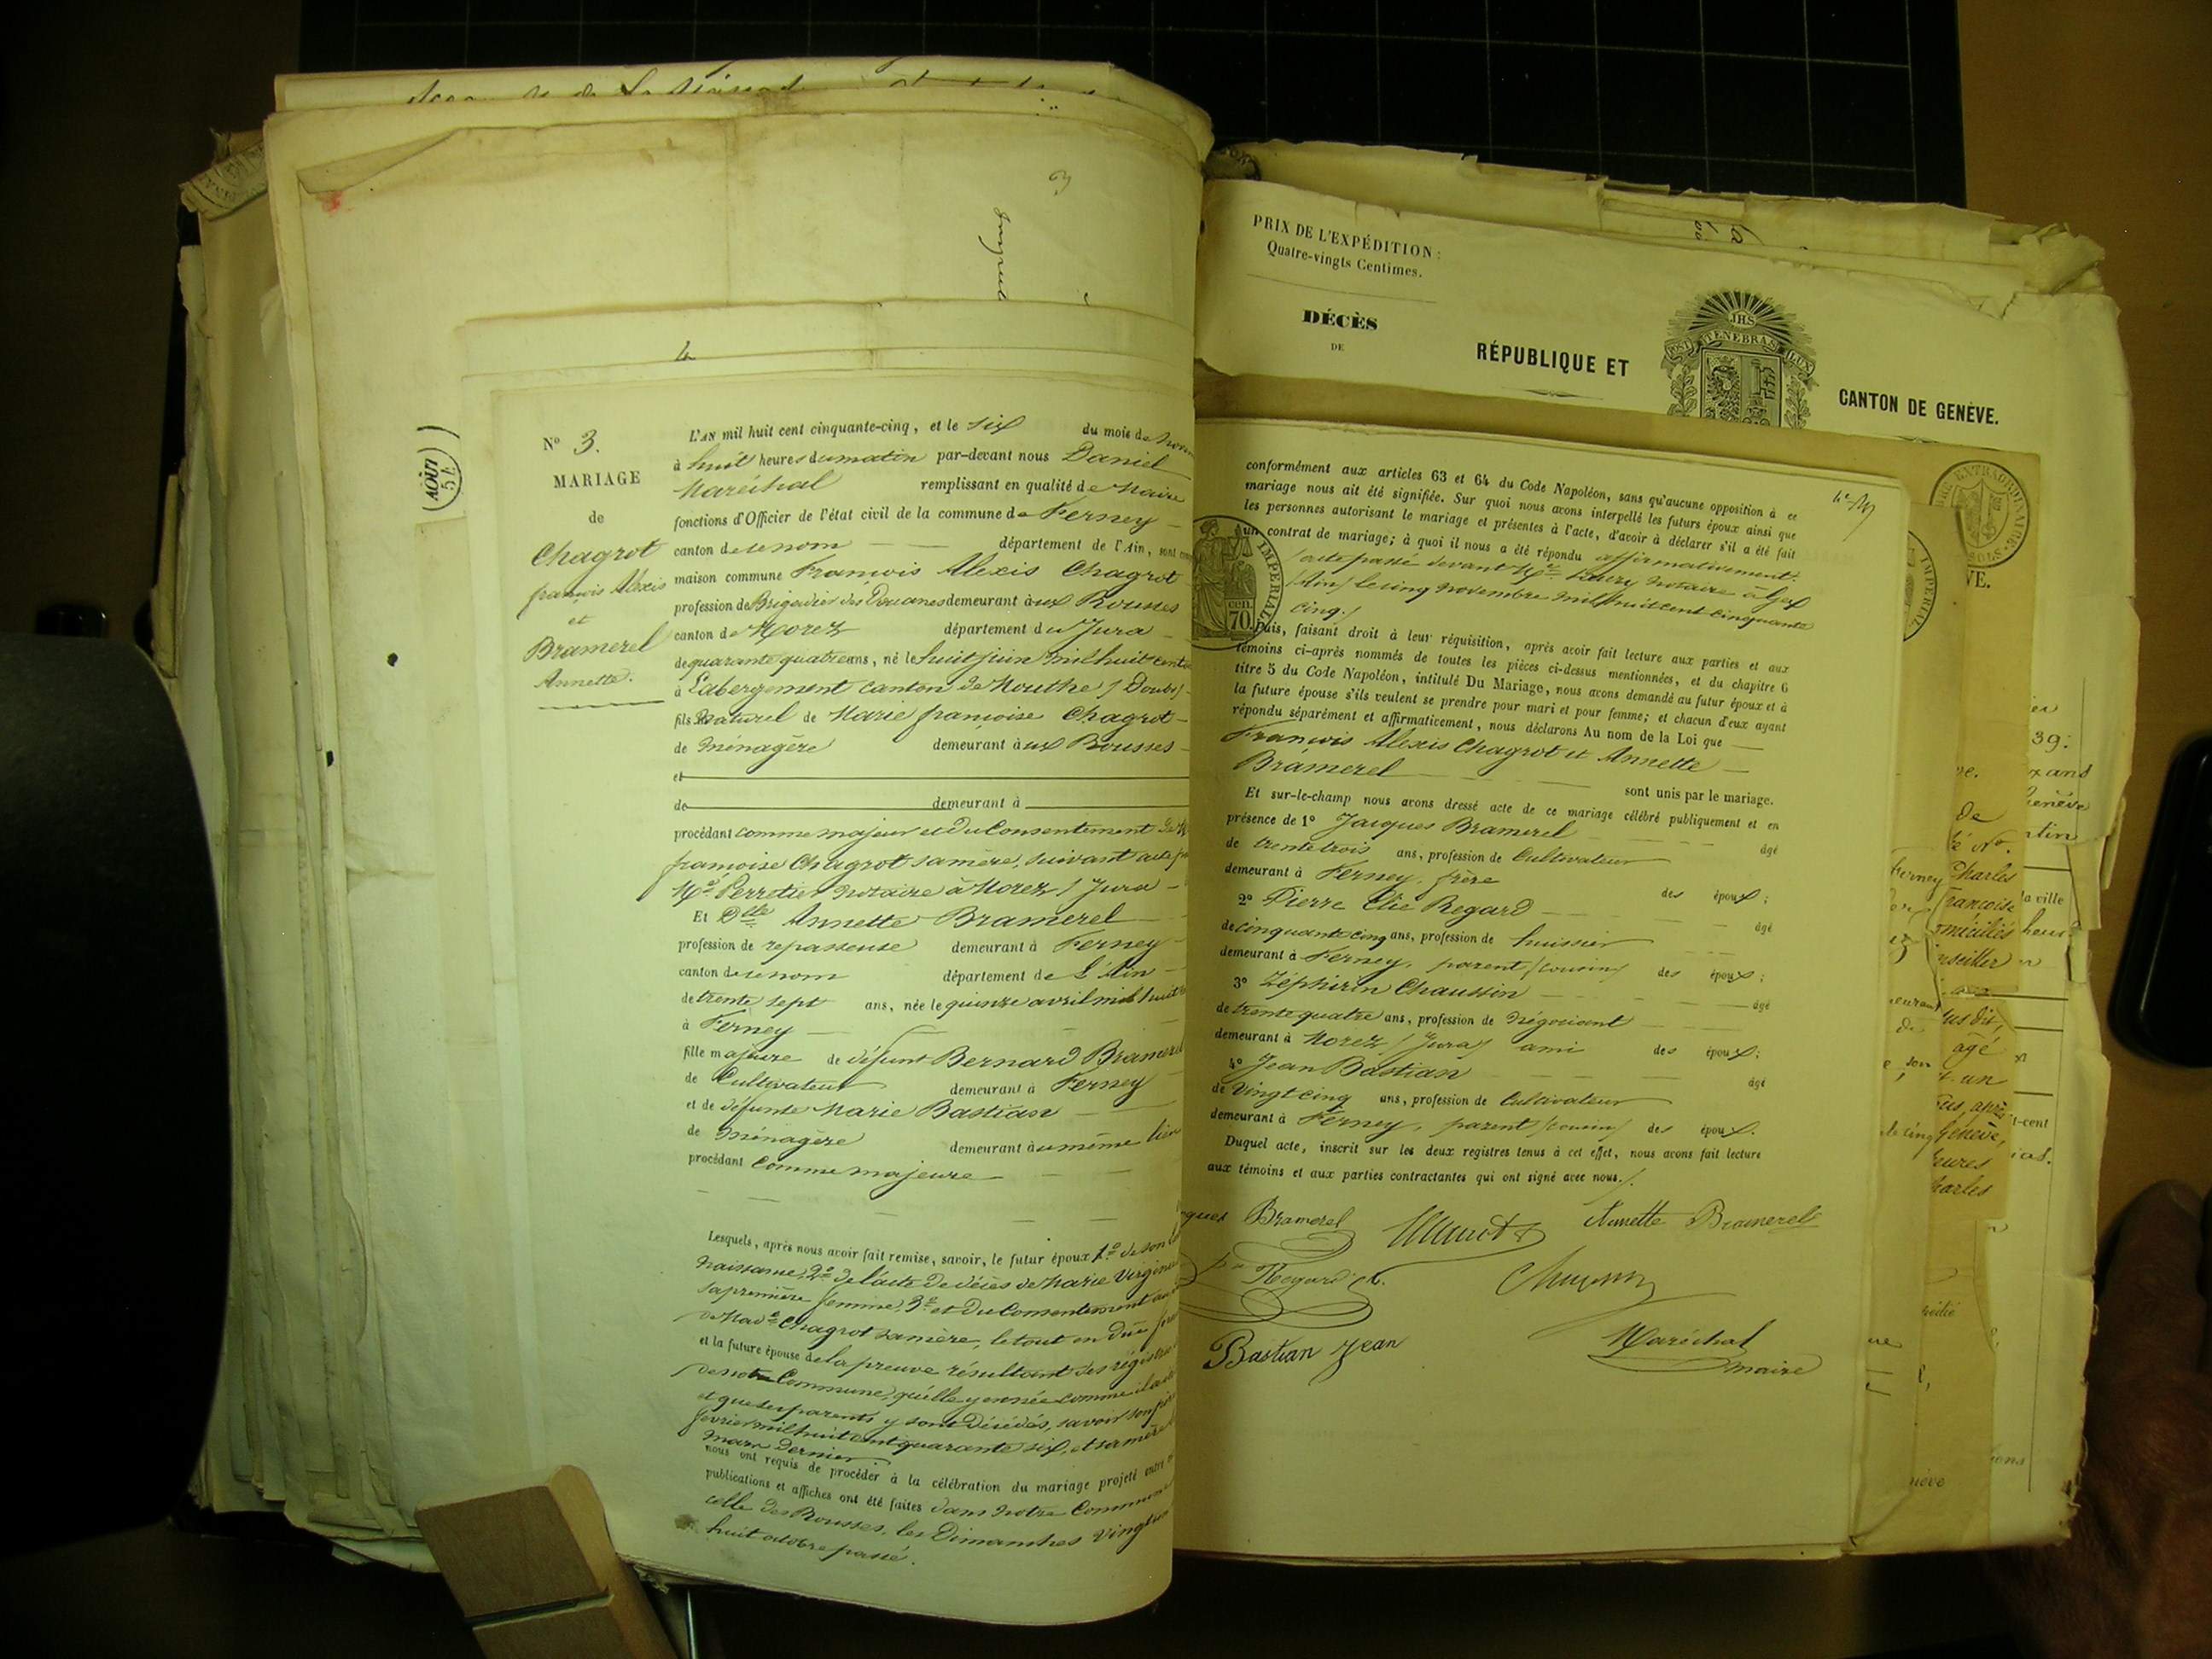 3
4
(AOIN)
51
Nº 3.
MARIAGE
de
Chagrot
françois Alexis
et
Bramerel
Annette.
L'AN mil huit cent cinquante-cinq, et le six du mois de
à huit heures du matin par-devant nous Daniel
Maréchal remplissant en qualité de Maire
fonctions d'Officier de l'état civil de la commune de Ferney
canton de ce nom département de l'Ain, sont
maison commune François Alexis Chagrot
profession de Brigadier des Douanes demeurant à ux Rousses
canton de Morez département du Jura
de quarante quatre ans, né le huit juin mil huit cent
à Labergement canton de Mouthe / Doubs /
fils naturel de Marie françoise Chagrot
de Ménagère demeurant à ux Rousses
et
de demeurant à
procédant comme majeur et du Consentement de
françoise Chagrot sa mère, suivant acte
Me Perretier notaire à Morez / Jura
Et Dlle Annette Bramerel
profession de repasseuse demeurant à Ferney
canton de ce nom département de L'Ain
de trente sept ans, née le quinze avril mil huit
à Ferney
fille majeure de défunt Bernard Bramerel
de Cultivateur demeurant à Ferney
et de défunte Marie Bastian
de Ménagère demeurant à u même lieu
procédant Comme majeure
Lesquels, après nous avoir fait remise, savoir, le futur époux 1º de son
naissance, 2º de l'acte de décès de Marie Virginie
sa première femme, 3º et du Consentement
de Made Chagrot sa mère, le tout en due
et la future épouse de la preuve résultant des régistres
de notre Commune, qu'elle y est née comme il a été
et que ses parents y sont Décédés, savoir son
février mil huit cent quarante six, et sa mère
mars dernier
nous ont requis de procéder à la célébration du mariage projeté entre
publications et affiches ont été faites dans notre Commune
celle des Rousses, les Dimanches vingt
huit octobre passé.
PRIX DE L'EXPÉDITION :
Quatre-vingts Centimes.
DÉCÈS
DE
RÉPUBLIQUE ET
JHS
POST TENEBRAS LUX
CANTON DE GENÈVE.
conformément aux articles 63 et 64 du Code Napoléon, sans qu'aucune opposition à ce
mariage nous ait été signifiée. Sur quoi nous avons interpellé les futurs époux ainsi que
les personnes autorisant le mariage et présentes à l'acte, d'avoir à déclarer s'il a été fait
un contrat de mariage; à quoi il nous a été répondu affirmativement.
/ acte passé devant Me notaire à Gex
/ Ain / le cinq novembre mil huit cent cinquante
cinq. /
IMPERIAL
cen.
70.
Puis, faisant droit à leur réquisition, après avoir fait lecture aux parties et aux
témoins ci-après nommés de toutes les pièces ci-dessus mentionnées, et du chapitre 6
titre 5 du Code Napoléon, intitulé Du Mariage, nous avons demandé au futur époux et à
la future épouse s'ils veulent se prendre pour mari et pour femme; et chacun d'eux ayant
répondu séparément et affirmativement, nous déclarons Au nom de la Loi que
François Alexis Chagrot et Annette
Bramerel sont unis par le mariage.
Et sur-le-champ nous avons dressé acte de ce mariage célébré publiquement et en
présence de 1º Jacques Bramerel âgé
de trente trois ans, profession de Cultivateur
demeurant à Ferney, frère des époux;
2º Pierre Elie Regard âgé
de cinquante cinq ans, profession de huissier
demeurant à Ferney, parent / cousin / des époux;
3º Zéphirin Chaussin âgé
de trente quatre ans, profession de Négociant
demeurant à Morez / Jura / ami des époux;
4º Jean Bastian âgé
de Vingt cinq ans, profession de Cultivateur
demeurant à Ferney, parent / cousin / des époux.
Duquel acte, inscrit sur les deux registres tenus à cet effet, nous avons fait lecture
aux témoins et aux parties contractantes qui ont signé avec nous. /.
Bramerel
Annette Bramerel
Regard
Bastian Jean
Maréchal
maire
EXTRAORDINAIRE
VE.
39.
Genève
de
Ferney Charles
Françoise
la ville
domiciliés
conseiller
susdit,
âgé
son
un
Genève,
heures
Charles